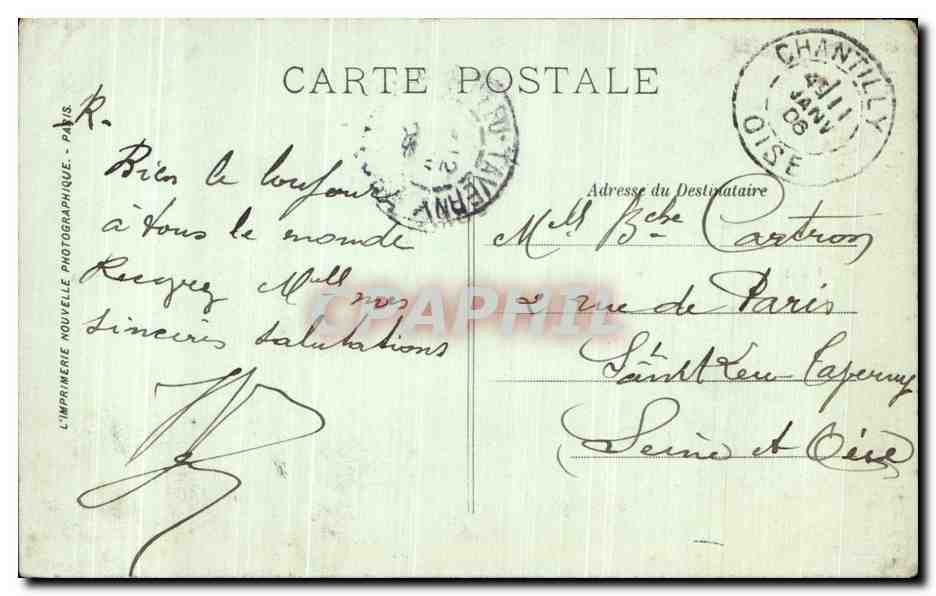 CARTE POSTALE
L'IMPRIMERIE NOUVELLE PHOTOGRAPHIQUE. - PARIS.
R.
Bien le toujours
à tous le monde
Recevez Mell nos
sincères salutations
CHANTILLY
JANV
06
OISE
TAVERNY
Adresse du Destinataire
Mell Bche Cartron
2 rue de Paris
Saint Leu Taverny
Seine et Oise
CPAPHIL